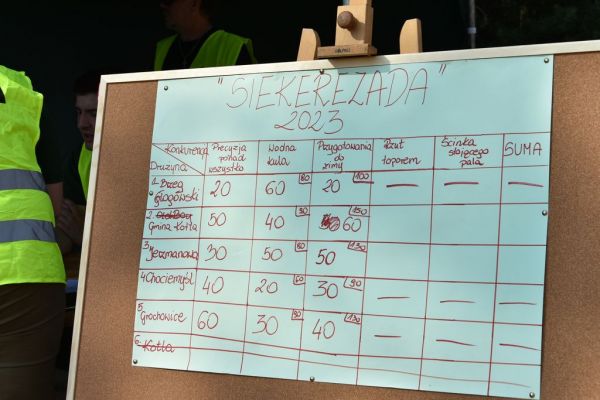 "SIEKEREZADA"
2023
Konkurencja
Drużyna
Precyzja ponad wszystko
Wodna kula
Przygotowania do zimy
Rzut toporem
Ścinka stojącego pala
SUMA
1. Brzeg Głogowski 20 60 80 20 100 — — —
2. Gmina Kotla 50 40 90 60 150
3. Jerzmanowa 30 50 80 50 130
4. Chociemyśl 40 20 60 30 90 — — —
5. Grochowice 60 30 90 40 130 — — —
6. Kotla